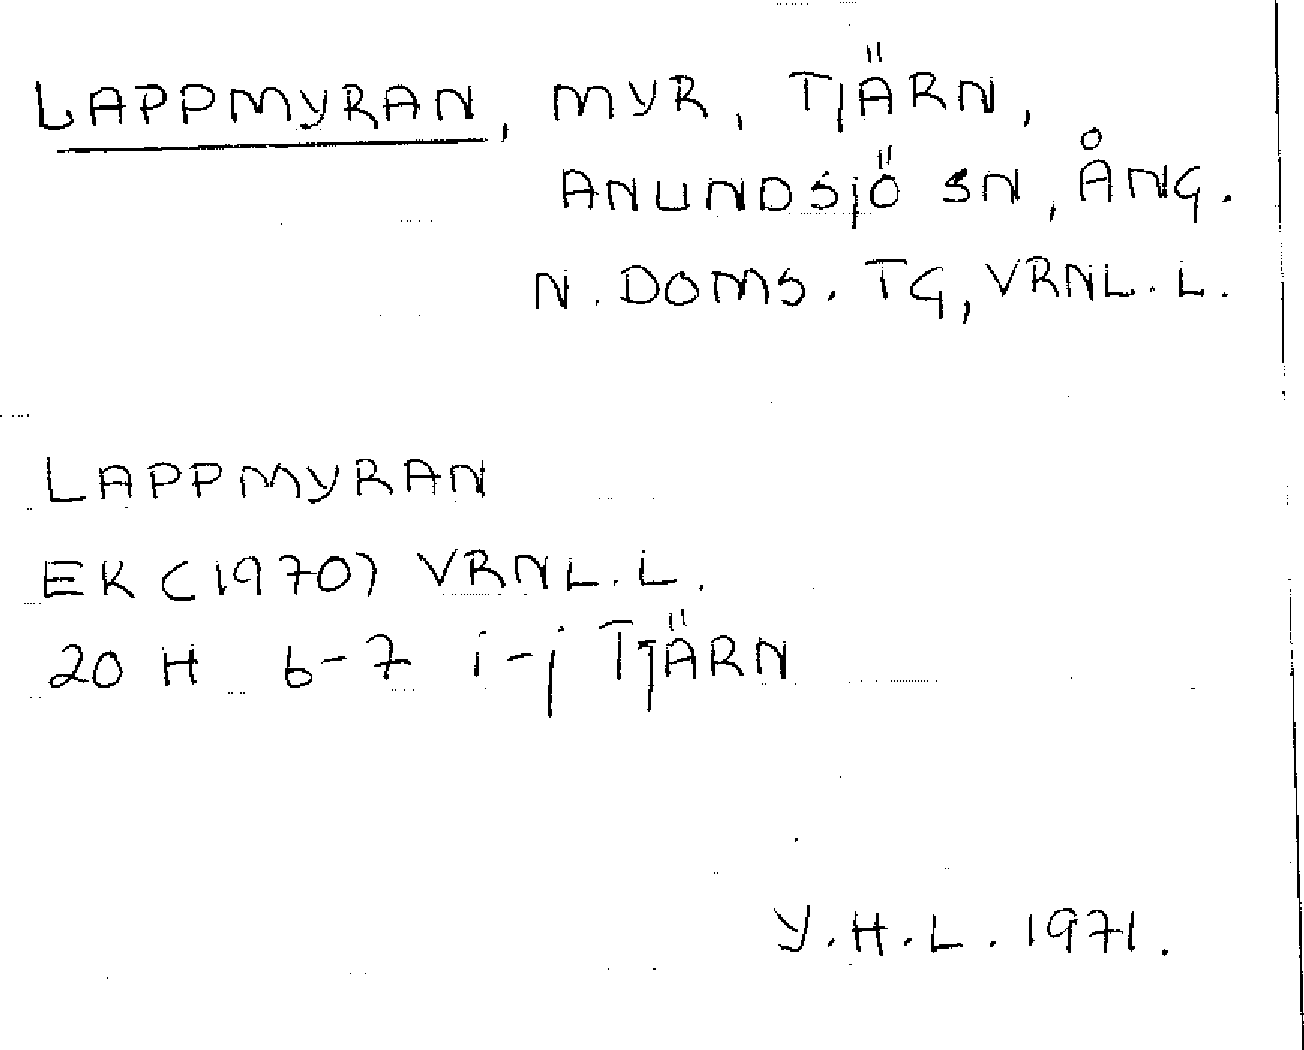 LAPPMYRAN, MYR, TJÄRN,
ANUNDSJÖ SN, ÅNG.
N. DOMS. TG, VRNL. L.
LAPPMYRAN
EK (1970) VRNL. L.
20 H 6-7 i-j TJÄRN
Y.H.L. 1971.